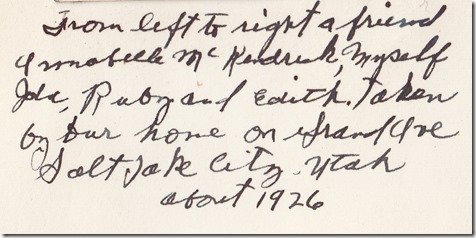 From left to right a friend
Annabelle McKendrick, Myself
Ida, Ruby and Edith. Taken
by our home on Grand Ave
Salt Lake City. Utah
about 1926